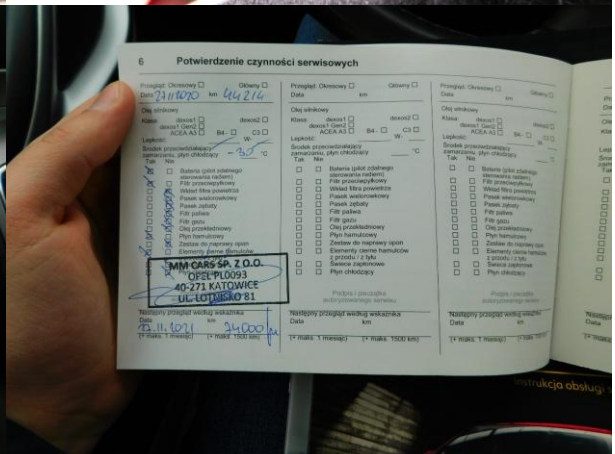 6 Potwierdzenie czynności serwisowych
Przegląd: Okresowy Główny
Data 27.11.2020 km 44214
Olej silnikowy
Klasa: dexos1 dexos2
dexos1 Gen2
ACEA A3 B4- C3
Lepkość: W-
Środek przeciwdziałający
zamarzaniu, płyn chłodzący -35 °C
Tak Nie
Bateria (pilot zdalnego
sterowania radiem)
Filtr przeciwpyłkowy
Wkład filtra powietrza
Pasek wielorowkowy
Pasek zębaty
Filtr paliwa
Filtr gazu
Olej przekładniowy
Płyn hamulcowy
Zestaw do naprawy opon
Elementy cierne hamulców
MM CARS SP. Z O.O.
OPEL PL0093
40-271 KATOWICE
UL. LOTNISKO 81
Następny przegląd według wskaźnika
Data km
27.11.2021 74000
(+ maks. 1 miesiąc) (+ maks. 1500 km)
Przegląd: Okresowy Główny
Data km
Olej silnikowy
Klasa: dexos1 dexos2
dexos1 Gen2
ACEA A3 B4- C3
Lepkość: W-
Środek przeciwdziałający
zamarzaniu, płyn chłodzący °C
Tak Nie
Bateria (pilot zdalnego
sterowania radiem)
Filtr przeciwpyłkowy
Wkład filtra powietrza
Pasek wielorowkowy
Pasek zębaty
Filtr paliwa
Filtr gazu
Olej przekładniowy
Płyn hamulcowy
Zestaw do naprawy opon
Elementy cierne hamulców
z przodu / z tyłu
Świece zapłonowe
Płyn chłodzący
Podpis i pieczątka
autoryzowanego serwisu
Następny przegląd według wskaźnika
Data km
(+ maks. 1 miesiąc) (+ maks. 1500 km)
Przegląd: Okresowy Główny
Data km
Olej silnikowy
Klasa: dexos1 dexos2
dexos1 Gen2
ACEA A3 B4- C3
Lepkość: W-
Środek przeciwdziałający
zamarzaniu, płyn chłodzący °C
Tak Nie
Bateria (pilot zdalnego
sterowania radiem)
Filtr przeciwpyłkowy
Wkład filtra powietrza
Pasek wielorowkowy
Pasek zębaty
Filtr paliwa
Filtr gazu
Olej przekładniowy
Płyn hamulcowy
Zestaw do naprawy opon
Elementy cierne hamulców
z przodu / z tyłu
Świece zapłonowe
Płyn chłodzący
Podpis i pieczątka
autoryzowanego serwisu
Następny przegląd według wskaźnika
Data km
(+ maks. 1 miesiąc) (+ maks. 1500 km)
Instrukcja obsługi